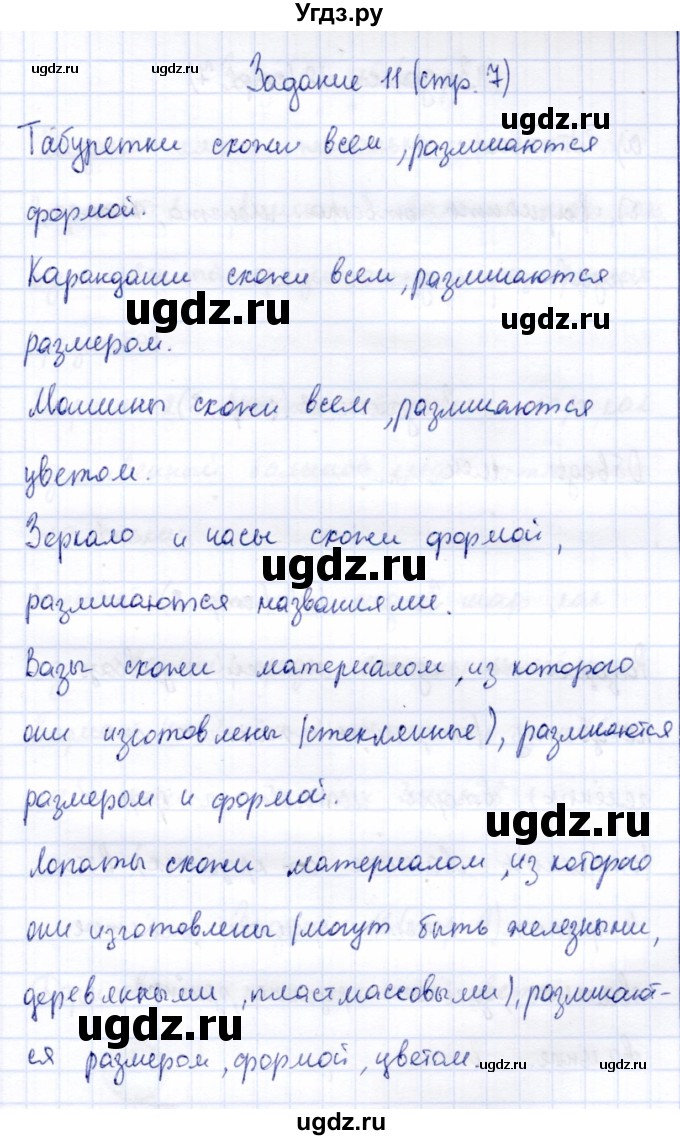 Угдз.ру
ugdz.ru ugdz.ru ugdz.ru
Задание 11 (стр. 7)
ugdz.ru
Табуретки схожи всем, различаются
формой.
Карандаши схожи всем, различаются
ugdz.ru
ugdz.ru
размером.
Машины схожи всем, различаются
цветом.
Зеркало и часы схожи формой,
ugdz.ru
различаются названиями.
Вазы схожи материалом, из которого
они изготовлены (стеклянные), различаются
размером и формой.
ugdz.ru
Лопаты схожи материалом, из которого
они изготовлены (могут быть железными,
деревянными, пластмассовыми), различают-
ugdz.ru
ся размером, формой, цветом.
ugdz.ru ugdz.ru
ugdz.ru